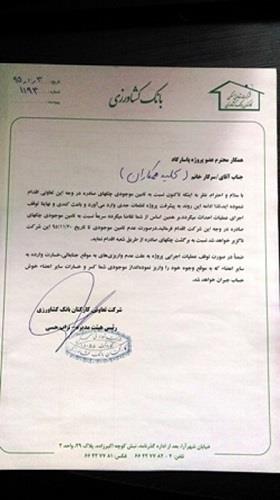 بانک کشاورزی
۱۱۹۳
همکار محترم عضو پروژه پاسارگاد
جناب آقای/سرکار خانم ( کلیه همکاران )
با سلام و احترام نظر به اینکه تاکنون نسبت به تامین موجودی چکهای صادره در وجه این تعاونی اقدام
ننموده ایدلذا ادامه این روند به پیشرفت پروژه لطمات جدی وارد می‌آورد و باعث کندی و نهایتا توقف
اجرای عملیات احداث میگردد.بر همین اساس از شما تقاضا میگردد سریعاً نسبت به تامین موجودی چکهای
صادره در وجه این شرکت اقدام فرمائید.درصورت عدم تامین موجودی تا تاریخ 95/11/20 این شرکت
ناگزیر خواهد شد نسبت به برگشت چکهای صادره از طریق شعبه اقدام نماید.
ضمناً در صورت توقف عملیات اجرایی پروژه به علت عدم واریزی‌های به موقع جنابعالی،خسارت وارده به
سایر اعضاء که به موقع وجوه خود را واریز نموده‌انداز موجودی شما کسر و خسارات سایر اعضاء خوش
حساب جبران خواهد شد.
شرکت تعاونی کارکنان بانک کشاورزی
رئیس هیئت مدیره
خیابان شهرآرا، بعد از اداره گذرنامه، نبش کوچه اکبرزاده، پلاک ۲۹، واحد ۲
تلفن: ۲ - ۸۲ ۷۷ ۲۳ ۶۶ فکس: ۸۱ ۷۷ ۲۳ ۶۶